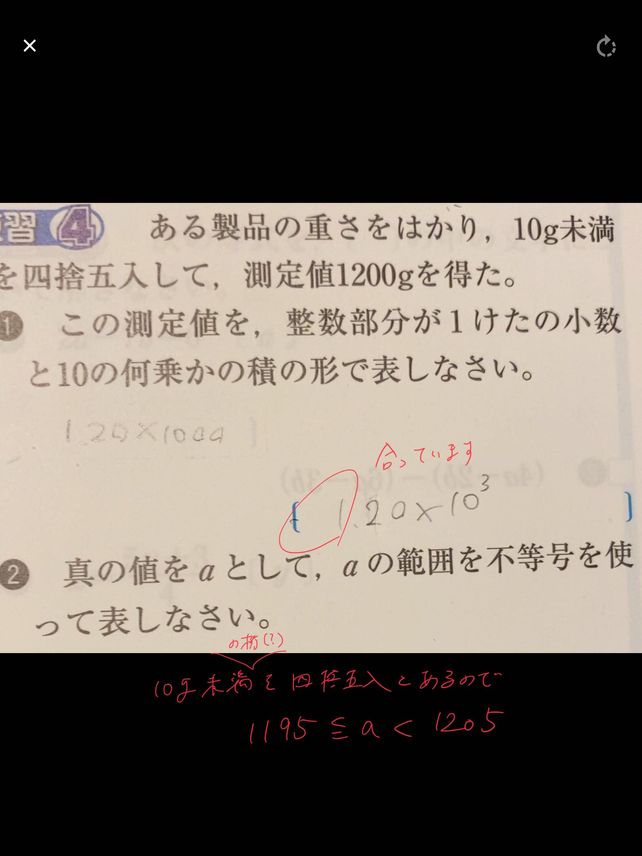 習 4 ある製品の重さをはかり，10g未満
を四捨五入して，測定値1200gを得た。
1 この測定値を，整数部分が1けたの小数
と10の何乗かの積の形で表しなさい。
1.20×1000
合っています
1.20×10³
2 真の値をaとして，aの範囲を不等号を使
って表しなさい。
の桁(?)
10g未満を四捨五入とあるので
1195 ≦ a < 1205